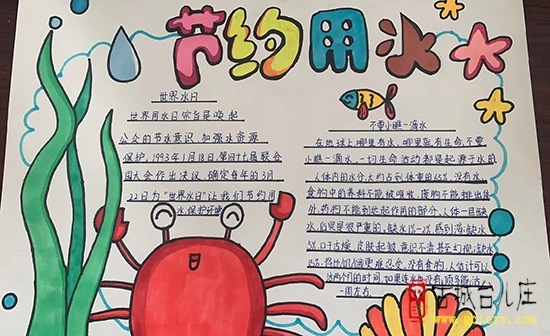 节约用水
世界水日
世界用水日宗旨是唤起
公众的节水意识,加强水资源
保护。1993年1月18日,第四十七届联合
国大会作出决议,确定每年的3月
22日为"世界水日"让我们节约用
水保护环境
不要小瞧一滴水
在地球上哪里有水,哪里就有生命,不要
小瞧一滴水,一切生命活动都是起源于水的
人体内的水分,大约占到体重的65%,没有水,
食物中的养料不能被吸收,废物不能排出体
外,药物不能到达起作用的部分,人体一旦缺
水,后果是很严重的,缺水1%-2%,感到渴;缺水
5%,口干舌燥,皮肤起皱,意识不清甚至幻视;缺水
没有食物,人体计可以
活两个月的时间,如果连水也没有,顶多能活
一周左右